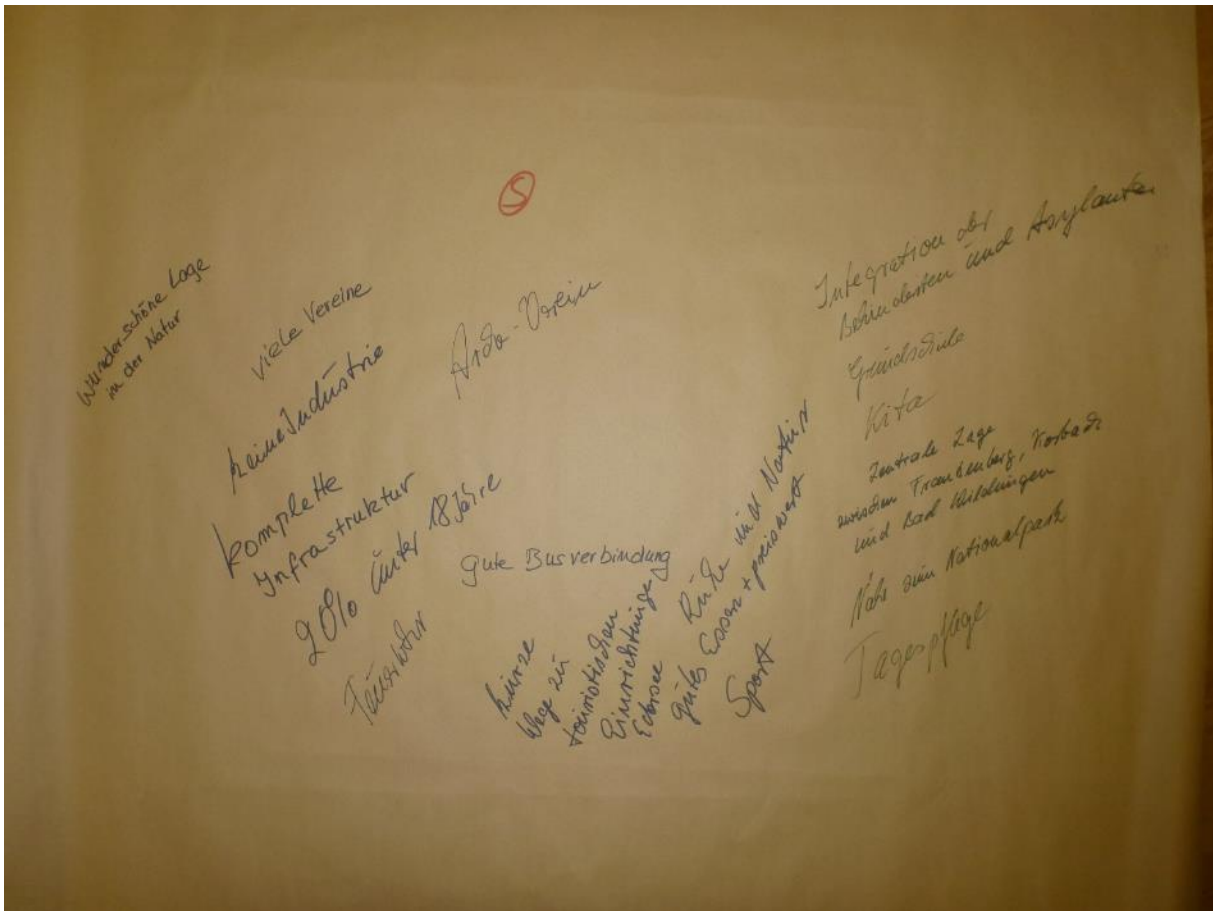 5
wunderschöne Lage
in der Natur
viele Vereine
keine Industrie
komplette
Infrastruktur
20% unter 18 Jahre
Feuerwehr
Arda-Verein
gute Busverbindung
kurze
Wege zu
touristischen
Einrichtungen
Edersee
Ruhe und Natur
gutes Essen + preiswert
Sport
Integration der
Behinderten und Asylanten
Grundschule
Kita
Zentrale Lage
zwischen Frankenberg, Korbach
und Bad Wildungen
Nähe zum Nationalpark
Tagespflege